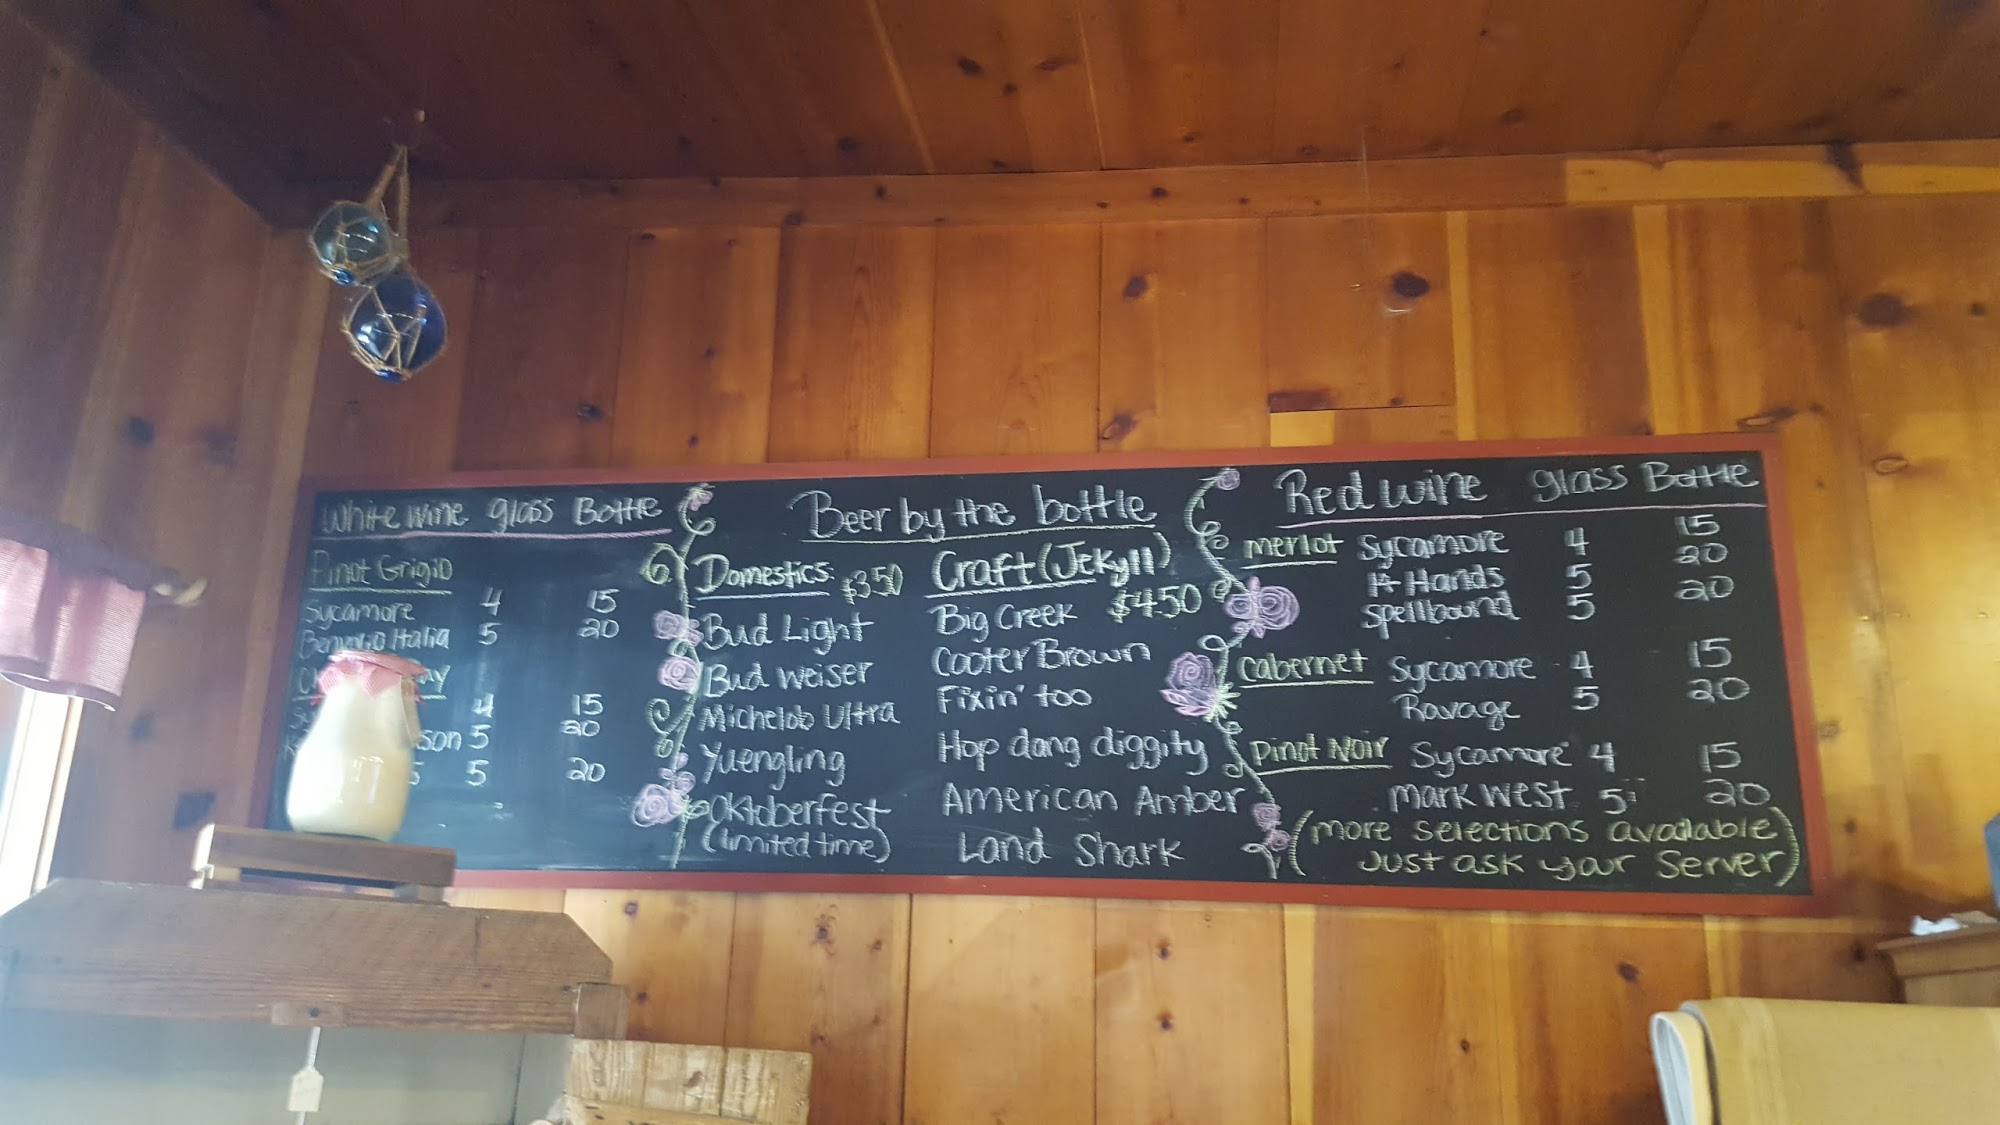 White wine glass Bottle
Pinot Grigio
Sycamore 4 15
Italia 5 20
4 15
son 5 20
5 20
Beer by the bottle
Domestics: $3.50
Bud Light
Bud weiser
Michelob Ultra
Yuengling
Oktoberfest
(limited time)
Craft (Jekyll)
$4.50
Big Creek
Cooter Brown
Fixin' too
Hop dang diggity
American Amber
Land Shark
Red wine glass Bottle
merlot Sycamore 4 15
14 Hands 5 20
Spellbound 5 20
Cabernet Sycamore 4 15
Ravage 5 20
Pinot Noir Sycamore 4 15
mark west 5 20
(more selections available
Just ask your Server)